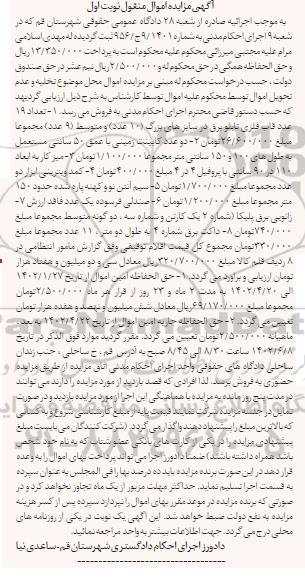 آگهی مزایده اموال منقول نوبت اول
به موجب اجرائیه صادره از شعبه ۲۸ دادگاه عمومی حقوقی شهرستان قم که در
شعبه ۹ اجرای احکام مدنی به شماره ۱۴۰۱/ج۹/۹۵۶ ثبت گردیده له مهدی اسلامی
مرام علیه مجتبی میرزائی محکوم علیه محکوم است به پرداخت ۱۳/۳۵۰/۰۰۰ ریال
و حق الحفاظه همگی در حق محکوم له و ۲/۵۰۰/۰۰۰ ریال نیم عشر در حق صندوق
دولت. حسب درخواست محکوم له مبنی بر مزایده اموال محل موضوع تخلیه و عدم
تحویل اموال توسط محکوم علیه اموال توسط کارشناس به شرح ذیل ارزیابی گردیهد
که حسب دستور قاضی محترم اجرای احکام مدنی به فروش می رسد. ۱- تعداد ۱۹
عدد قاب فلزی تابلو برق در سایز های بزرگ (۱۰ عدد) و متوسط (۹ عدد) مجموعا
مبلغ ۲۶/۶۰۰/۰۰۰ تومان ۲- دو عدد کابینت زمینی با عمق ۵۰ سانتی مستعمل
به طول های ۱۱۰ و ۱۵۰ سانتی متر مجموعا ۱/۱۰۰/۰۰۰ تومان ۳- میز کار به ابعاد
۱۱۰ در ۹۰ سانتی با پروفیل ۴ در ۴ مبلغ ۴۰۰/۰۰۰ تومان ۴- کمد ویترینی ابزار دو
عدد مجموعا مبلغ ۱/۷۰۰/۰۰۰ تومان ۵- سیم آنتن نو و کهنه پاره شده حدود ۱۵۰
متر مجموعا مبلغ ۱/۲۰۰/۰۰۰ تومان ۶- صندلی فرسوده یک عدد فاقد ارزش ۷-
زانویی برق پلیکا (شماره ۲ یک کارتن و شماره سه، دو گونه متوسط مجموعا مبلغ
۷۴۰/۰۰۰ تومان ۸- داکت برق شماره ۴ به طول دو متر، ۱۱ عدد مجموعا مبلغ
۳۳۰/۰۰۰ تومان مجموع کل قیمت اقلام توقیفی وفق گزارش مامور انتظامی در
۸ ردیف قلم کالا مبلغ ۳۲۰/۷۰۰/۰۰۰ ریال معادل سی و دو میلیون و هفتاد هزار
تومان ارزیابی و برآورد می گردد. ۱- حق الحفاظه امین اموال از تاریخ ۱۴۰۲/۱/۲۷
الی ۱۴۰۲/۴/۲۰ به مدت ۲ ماه و ۲۳ روز از قرار هر ماه ۲/۵۰۰/۰۰۰ تومان
مجموعا مبلغ ۶۹/۱۷۰/۰۰۰ ریال معادل شش میلیون و نهصد و هفده هزار تومان
تعیین می گردد. ۲- حق الحفاظه جاریه امین اموال از تاریخ ۱۴۰۲/۴/۲۲ به بعد،
ماهیانه ۲/۵۰۰/۰۰۰ تومان تعیین می گردد. مقرر گردید موارد فوق الذکر در تاریخ
۱۴۰۲/۶/۸ ساعت ۸/۳۰ الی ۸/۴۵ صبح به آدرس قم، خ ساحلی، جنب زندان
ساحلی دادگاه های حقوقی واحد اجرای احکام مدنی اتاق مزایده از طریق مزایده
حضوری به فروش برسد. لذا افرادی که قصد بازدید از مورد مزایده را دارند می توانند
در مدت پنج روز مانده به مزایده با هماهنگی این اجرا از مورد مزایده بازدید و در صورت
تمایل در جلسه مزایده شرکت نمایند قیمت پایه از مبلغ کارشناسی شروع و به کسی
که بالاترین مبلغ را پیشنهاد دهد واگذار می گردد. (شرکت کنندگان می بایست مبلغ
پیشنهادی مزایده را در یکی از کارت های بانکی عضو شتاب که به نام خود شخص
باشد همراه داشته باشند) ضمنا دادورز اجرا می تواند پرداخت بهای اموال را به وعده
قرار دهد در این صورت برنده مزایده باید ده درصد بها را فی المجلس به عنوان سپرده
به قسمت اجرا تسلیم نماید. حداکثر مهلت مزبور از یک ماه تجاوز نخواهد کرد و در
صورتی که برنده مزایده در موعد مقرر بهای اموال را نپردازد سپرده پس از کسر هزینه
مزایده به نفع دولت ضبط خواهد شد. این آگهی یک نوبت در یکی از روزنامه های
محلی درج می گردد. جهت اطلاعات بیشتر به واحد مراجعه نمائید.
دادورز اجرای احکام دادگستری شهرستان قم - ساعدی نیا